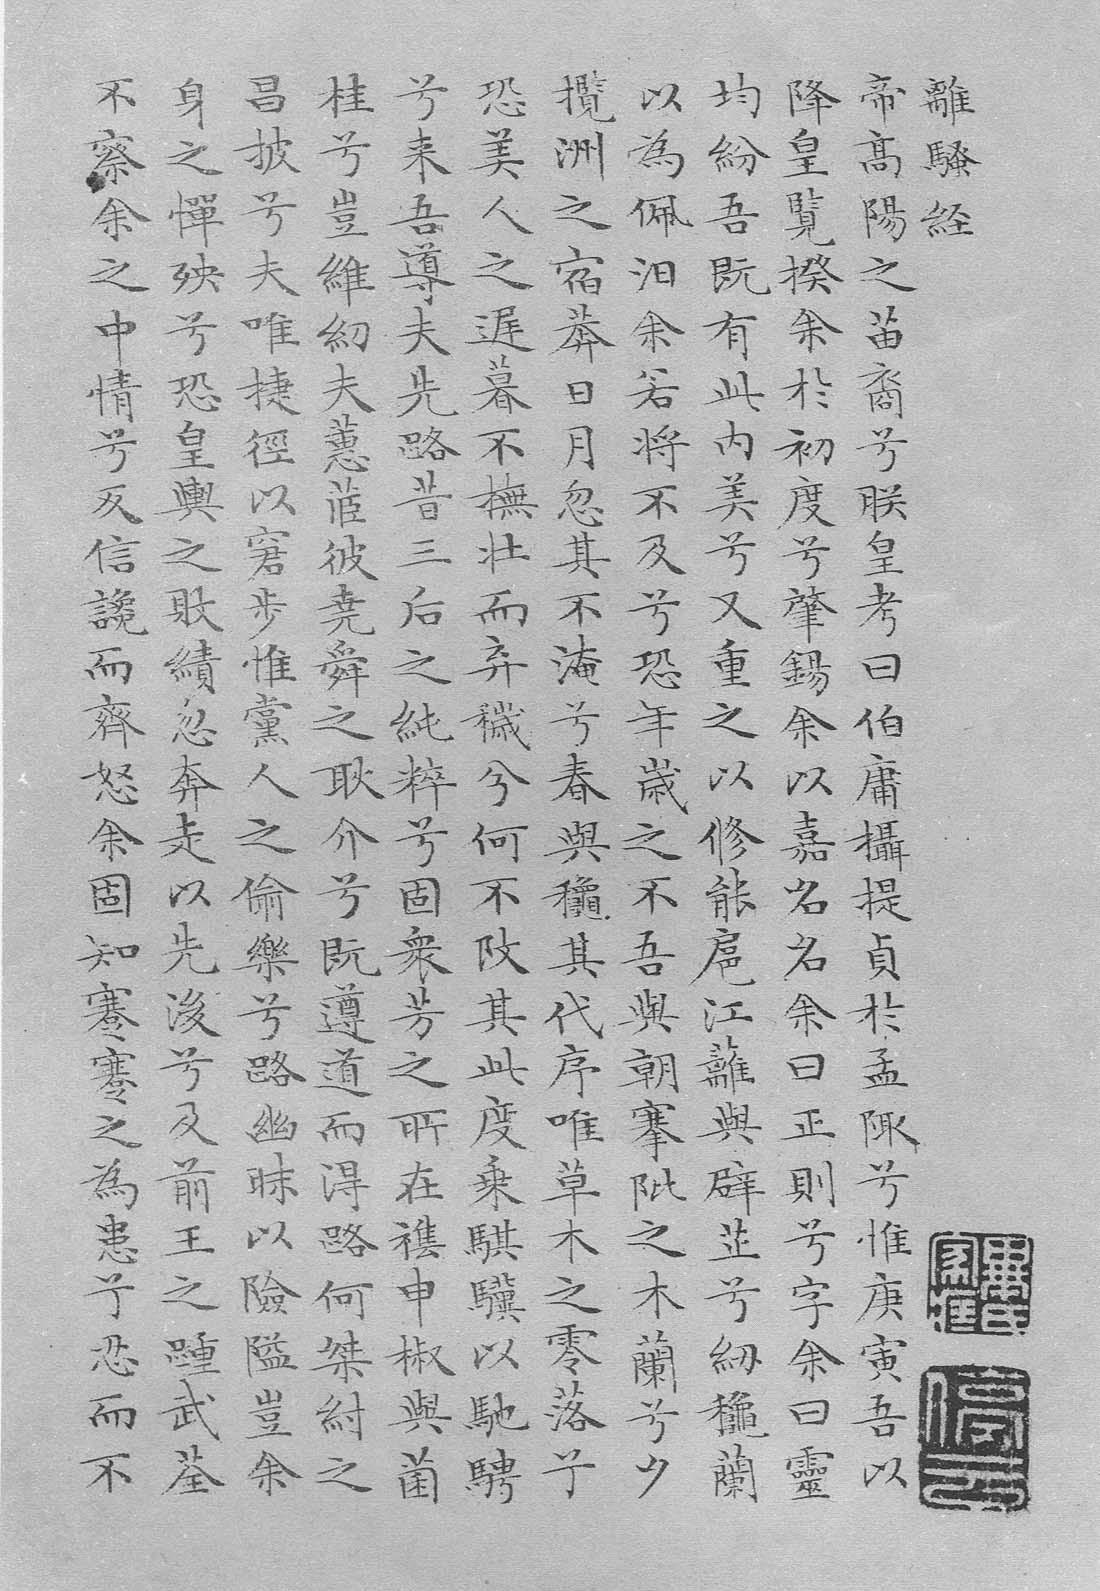 離騷経
帝髙陽之苗裔兮朕皇考曰伯庸攝提貞於孟陬兮惟庚寅吾以
降皇覽揆余於初度兮肇錫余以嘉名名余曰正則兮字余曰靈
均紛吾既有此内美兮又重之以修能扈江蘺與辟芷兮紉龝蘭
以為佩汩余若将不及兮恐年歲之不吾與朝搴阰之木蘭兮夕
攬洲之宿莽日月忽其不淹兮春與龝其代序唯草木之零落兮
恐美人之遅暮不撫壮而弃穢兮何不改其此度乗騏驥以馳騁
兮来吾導夫先路昔三后之純粹兮固衆芳之所在襍申椒與菌
桂兮豈維紉夫蕙茝彼堯舜之耿介兮既遵道而得路何桀紂之
昌披兮夫唯捷徑以窘步惟黨人之偷樂兮路幽昧以險隘豈余
身之憚殃兮恐皇輿之敗績忽奔走以先後兮及前王之踵武荃
不察余之中情兮反信讒而齊怒余固知蹇蹇之為患兮忍而不